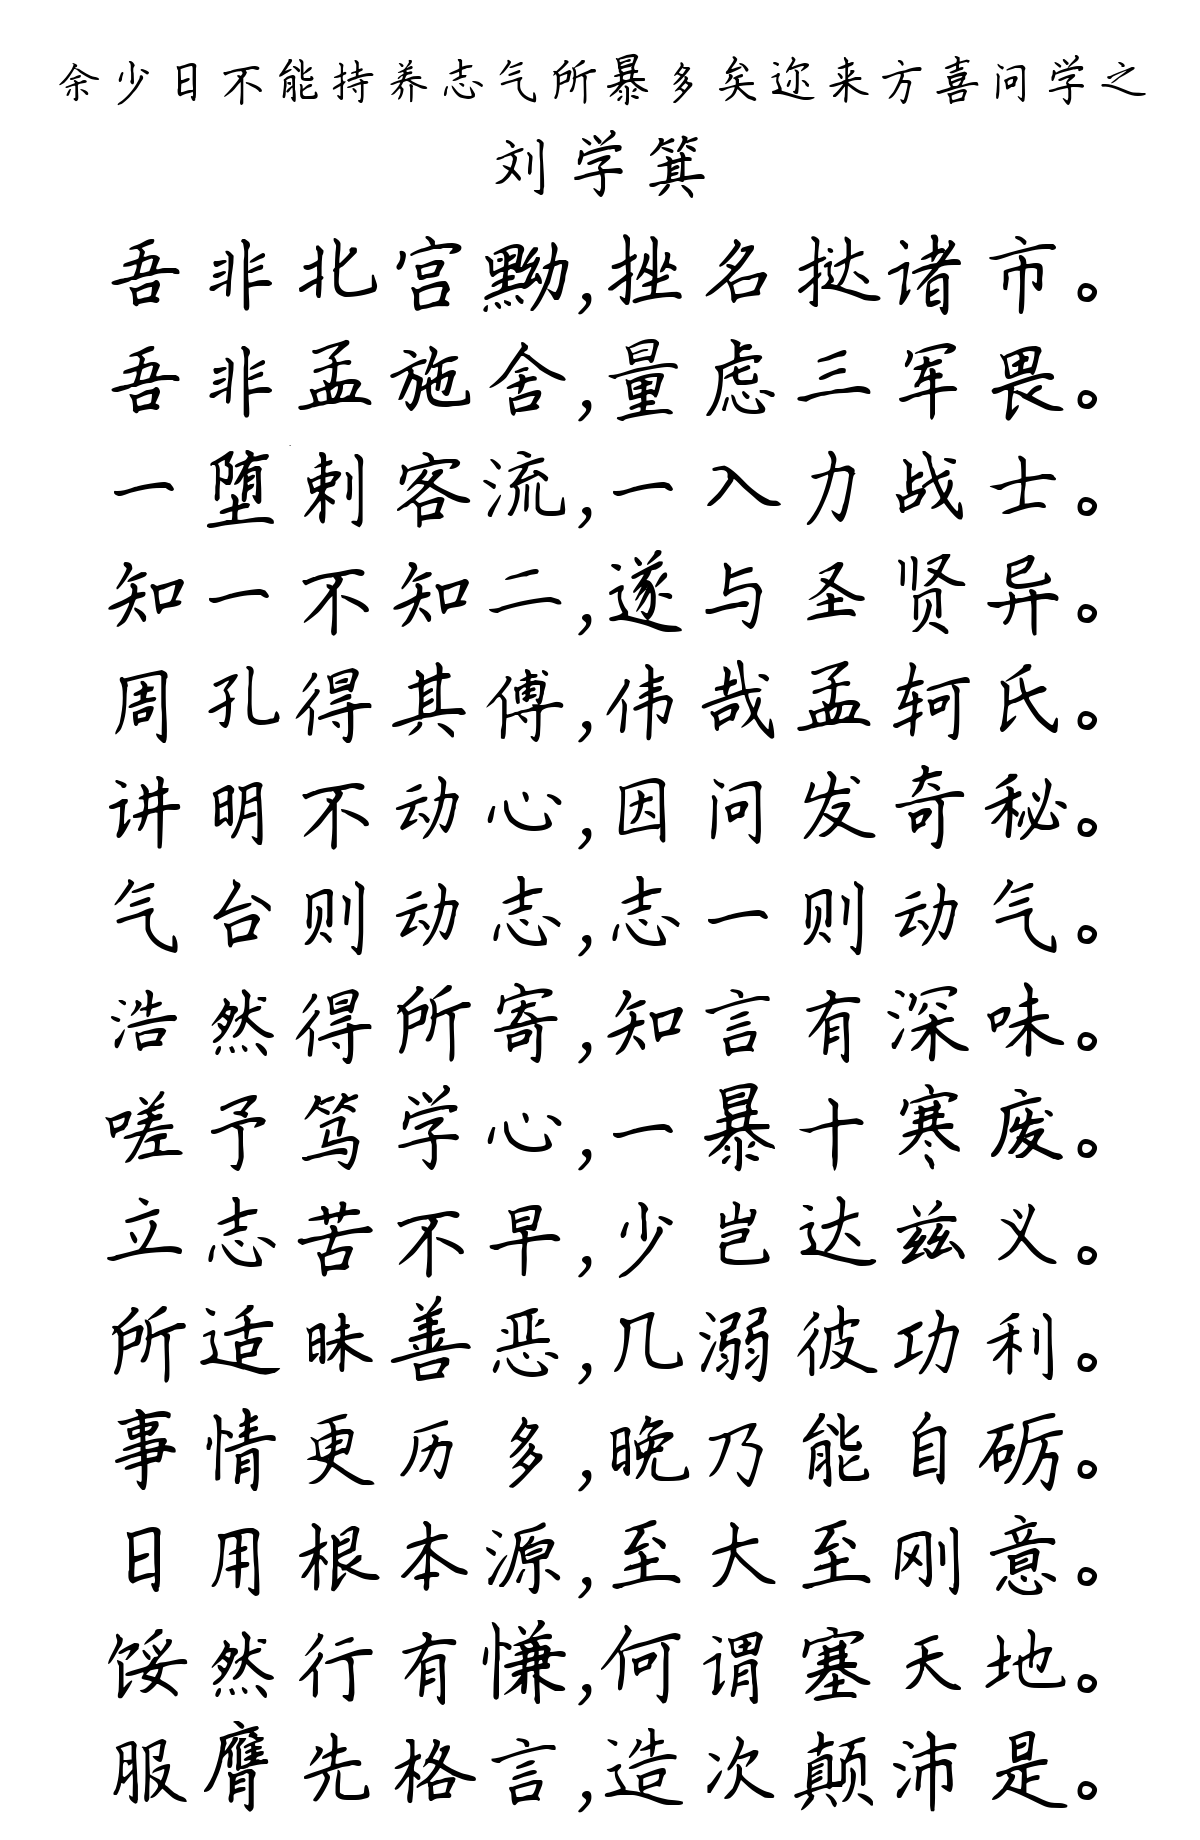 余少日不能持养志气所暴多矣迩来方喜问学之
刘学箕
吾非北宫黝,挫名挞诸市。
吾非孟施舍,量虑三军畏。
一堕刺客流,一入力战士。
知一不知二,遂与圣贤异。
周孔得其傅,伟哉孟轲氏。
讲明不动心,因问发奇秘。
气台则动志,志一则动气。
浩然得所寄,知言有深味。
嗟予笃学心,一暴十寒废。
立志苦不早,少岂达兹义。
所适昧善恶,几溺彼功利。
事情更历多,晚乃能自砺。
日用根本源,至大至刚意。
馁然行有慊,何谓塞天地。
服膺先格言,造次颠沛是。